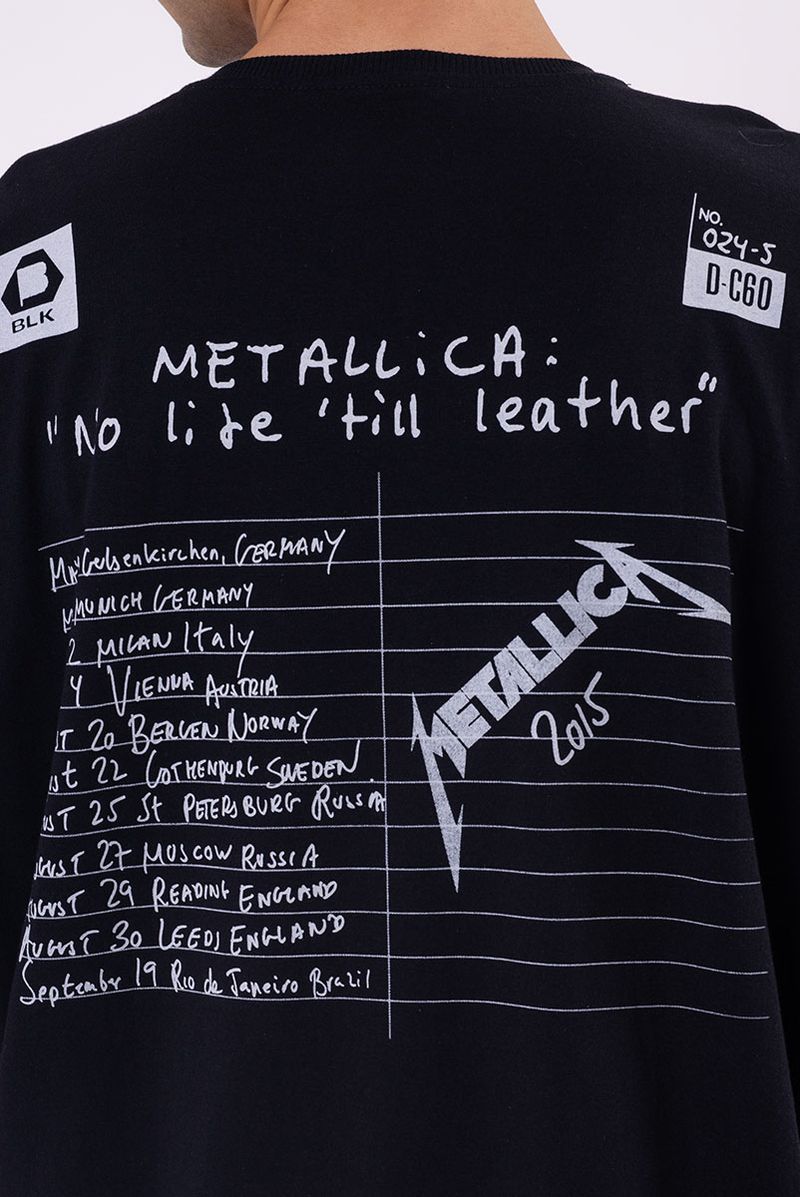 B
BLK
NO.
024-5
D-C60
METALLiCA:
"No life 'till leather"
MAY Gelsenkirchen, GERMANY
MUNICH GERMANY
2 MILAN Italy
4 VIENNA AUSTRIA
ST 20 BERGEN NORWAY
ust 22 GOTHENBURG SWEDEN.
UST 25 St PETERSBURG RUSSIA
UGUST 27 MOSCOW RUSSIA
AUGUST 29 READING ENGLAND
AUGUST 30 LEEDS ENGLAND
September 19 Rio de Janeiro Brazil
METALLICA
2015